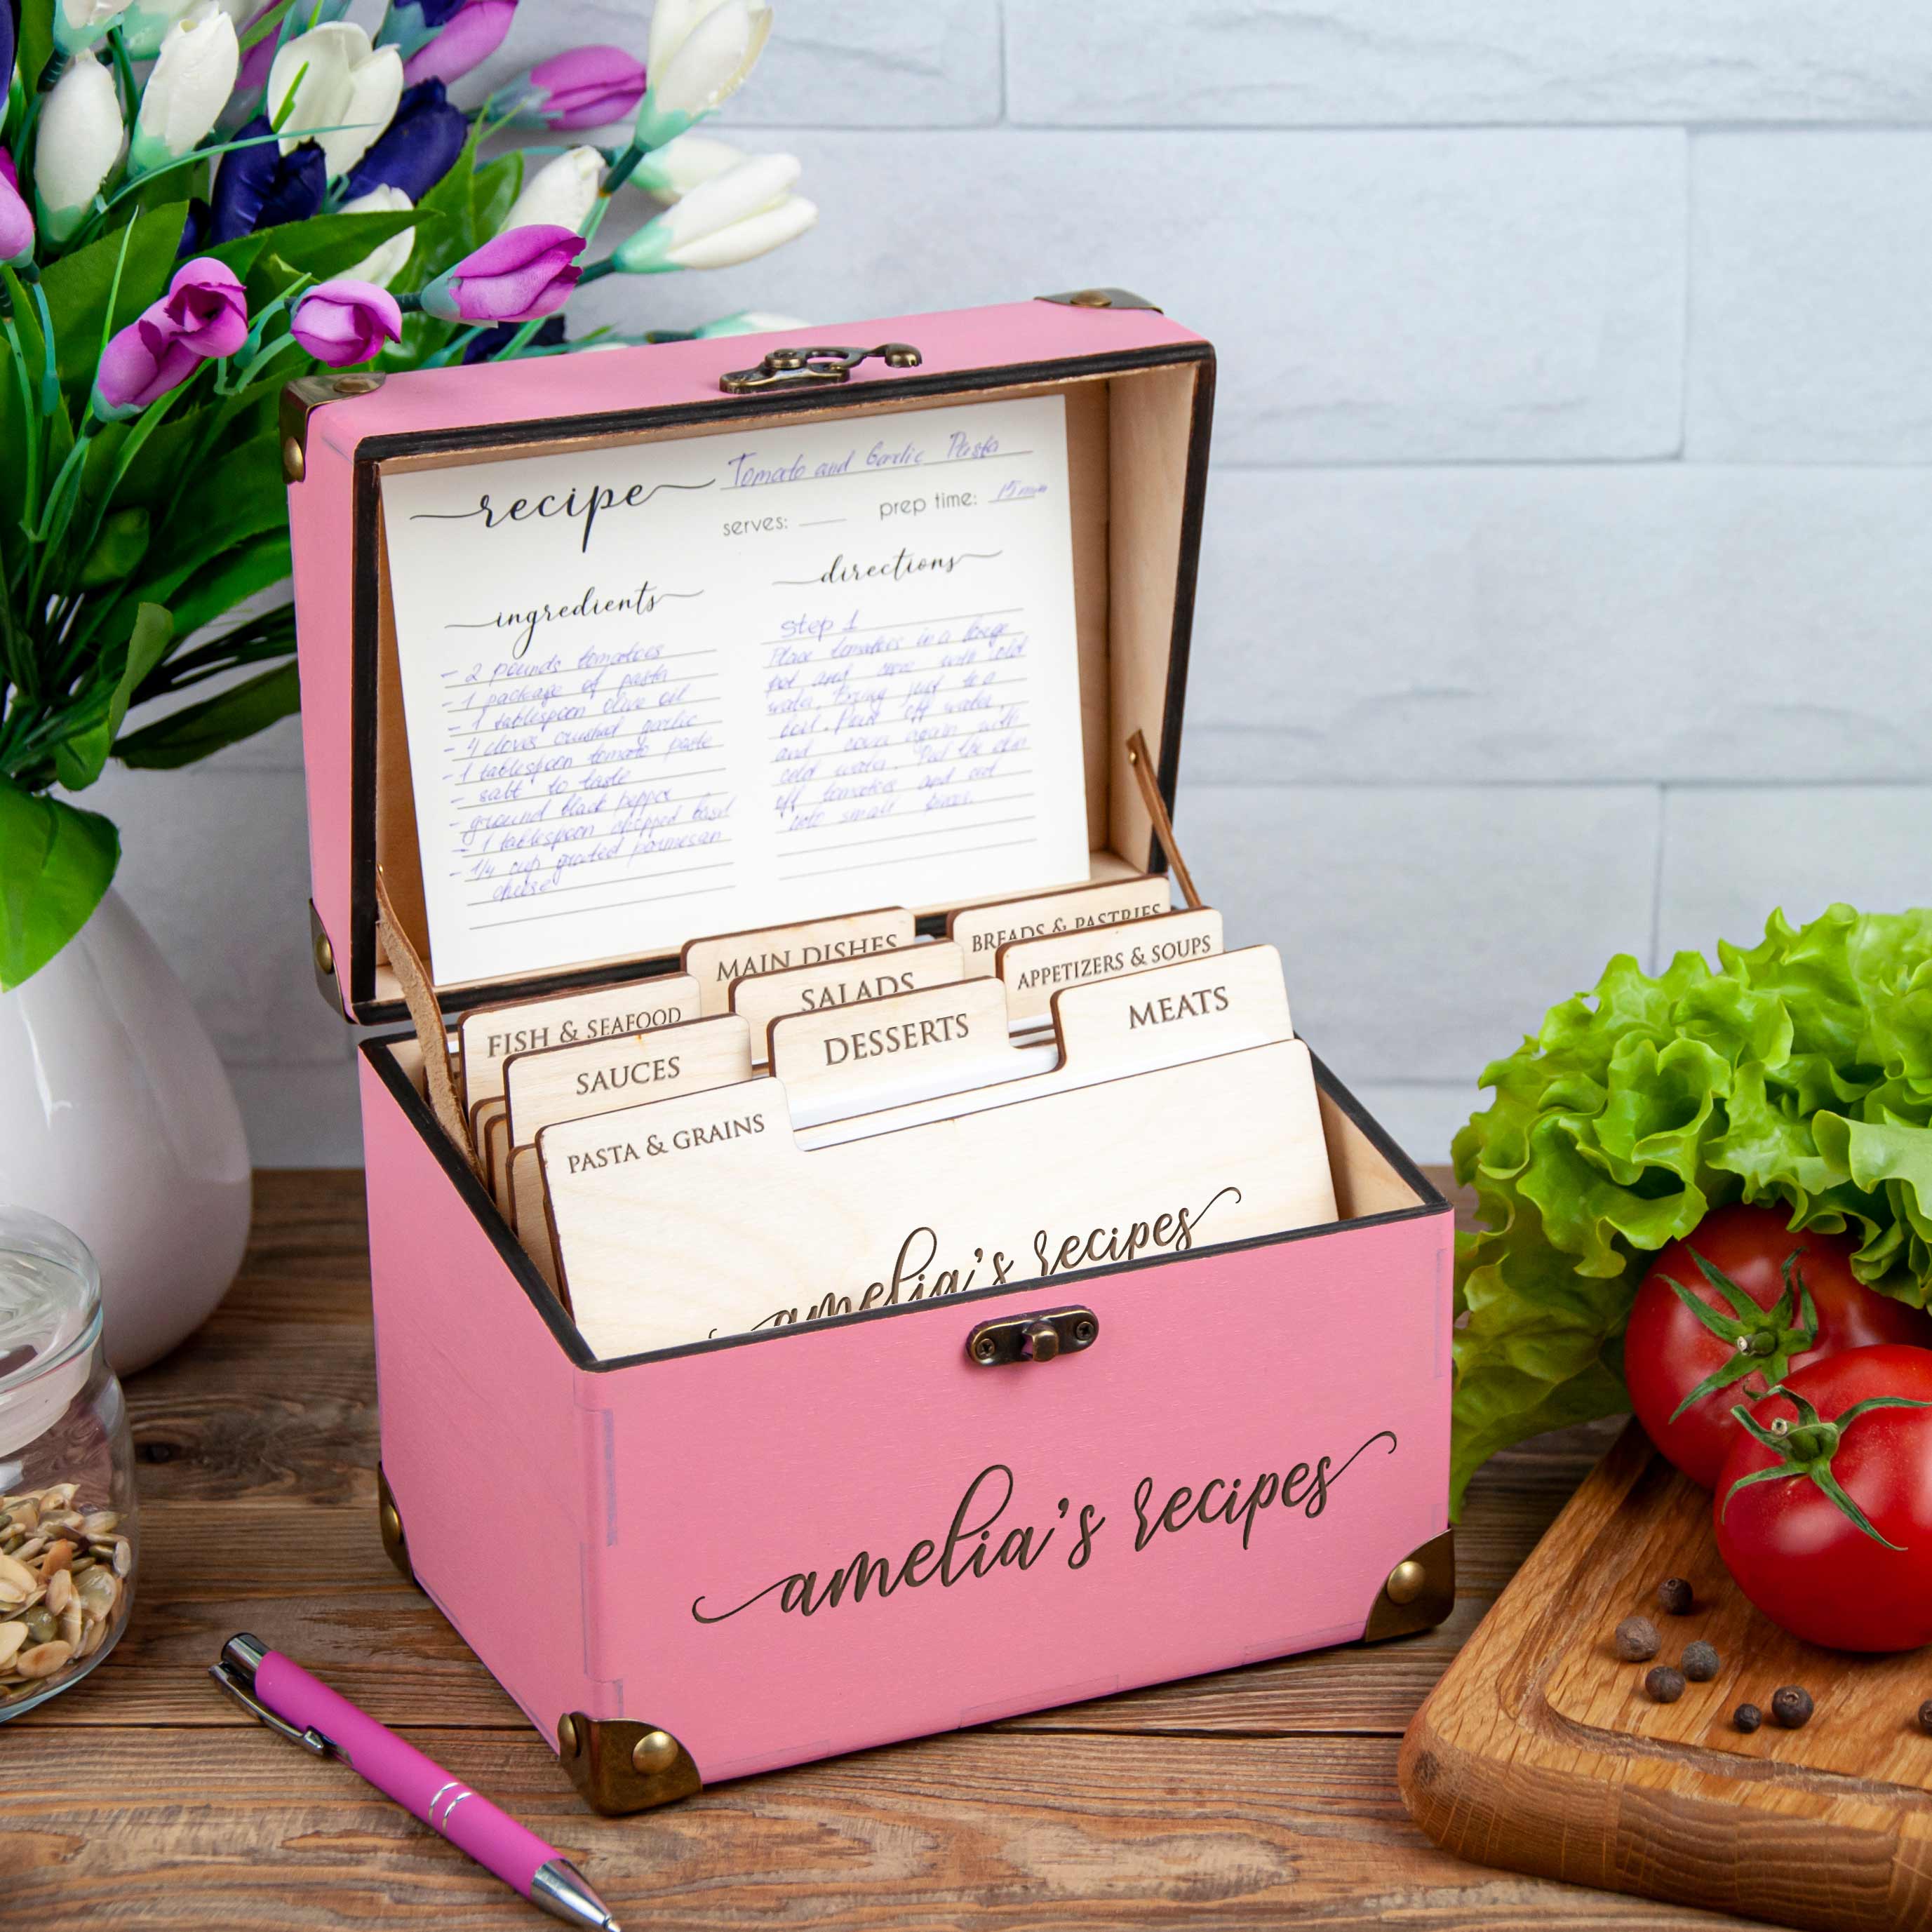 recipe Tomato and Garlic Pasta
serves: prep time: 15 min
ingredients
- 2 pounds tomatoes
- 1 package of pasta
- 1 tablespoon olive oil
- 4 cloves crushed garlic
- 1 tablespoon tomato paste
- salt to taste
- ground black pepper
- 1 tablespoon chopped basil
- 1/4 cup grated parmesan
cheese
directions
Step 1
Place tomatoes in a large
pot and cover with cold
water. Bring just to a
boil. Pour off water,
and cover again with
cold water. Peel the skin
off tomatoes and cut
into small
MAIN DISHES
BREADS & PASTRIES
FISH & SEAFOOD
SALADS
APPETIZERS & SOUPS
SAUCES
DESSERTS
MEATS
PASTA & GRAINS
amelia's recipes
amelia's recipes